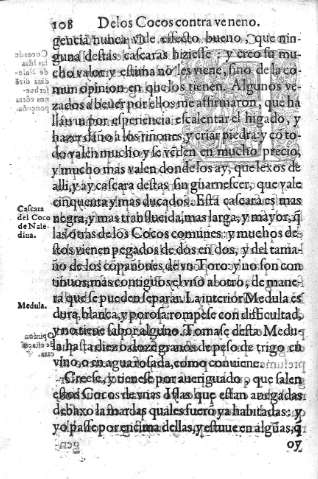 108 De los Cocos contra veneno.
gencia nunca vi de esto efeto bueno, que nin-
guna destas cascaras hiziesse: y creo su mu-
cho valor y estima no les viene, sino de la co-
mun opinion en que los tienen. Algunos ve-
zados a bever por ellos me affirmaron, que ha
llaṽan por esperiencia escalentar el higado, y
hazer daño a los riñones, y criar piedra: y cõ to-
do valen mucho y se veden en mucho precio,
y mucho mas valen donde los ay, que lexos de
alli, y ay cascara destas sin guarnescer, que vale
cinquenta y mas ducados. Esta cascara es mas
Cascara
del Coco
de Nale
dina.
negra, y mas transluzida, mas larga, y mayor, q̃
las otras de los Cocos comunes: y muchos de-
stos vienen pegados de dos en dos, y del tama-
ño de los compañones de vn Toro: y no son con
tinuos, mas contiguos el vno al otro, de mane-
ra que se pueden separar. La interior Medula es
Medula.
dura, blanca, y porosa: rompese con difficultad,
y no tiene sabor alguno. Tomase desta Medu-
la hasta diez o doze granos de peso de trigo en
vino, o en agua rosada, como conviene.
Creese, y tienese por averiguado, que salen
estos Cocos de vnas Islas que estan anegadas
debaxo la mar las quales fuerõ ya habitadas: y
yo passe por encima dellas, y estuue en algũas, q̃
oy